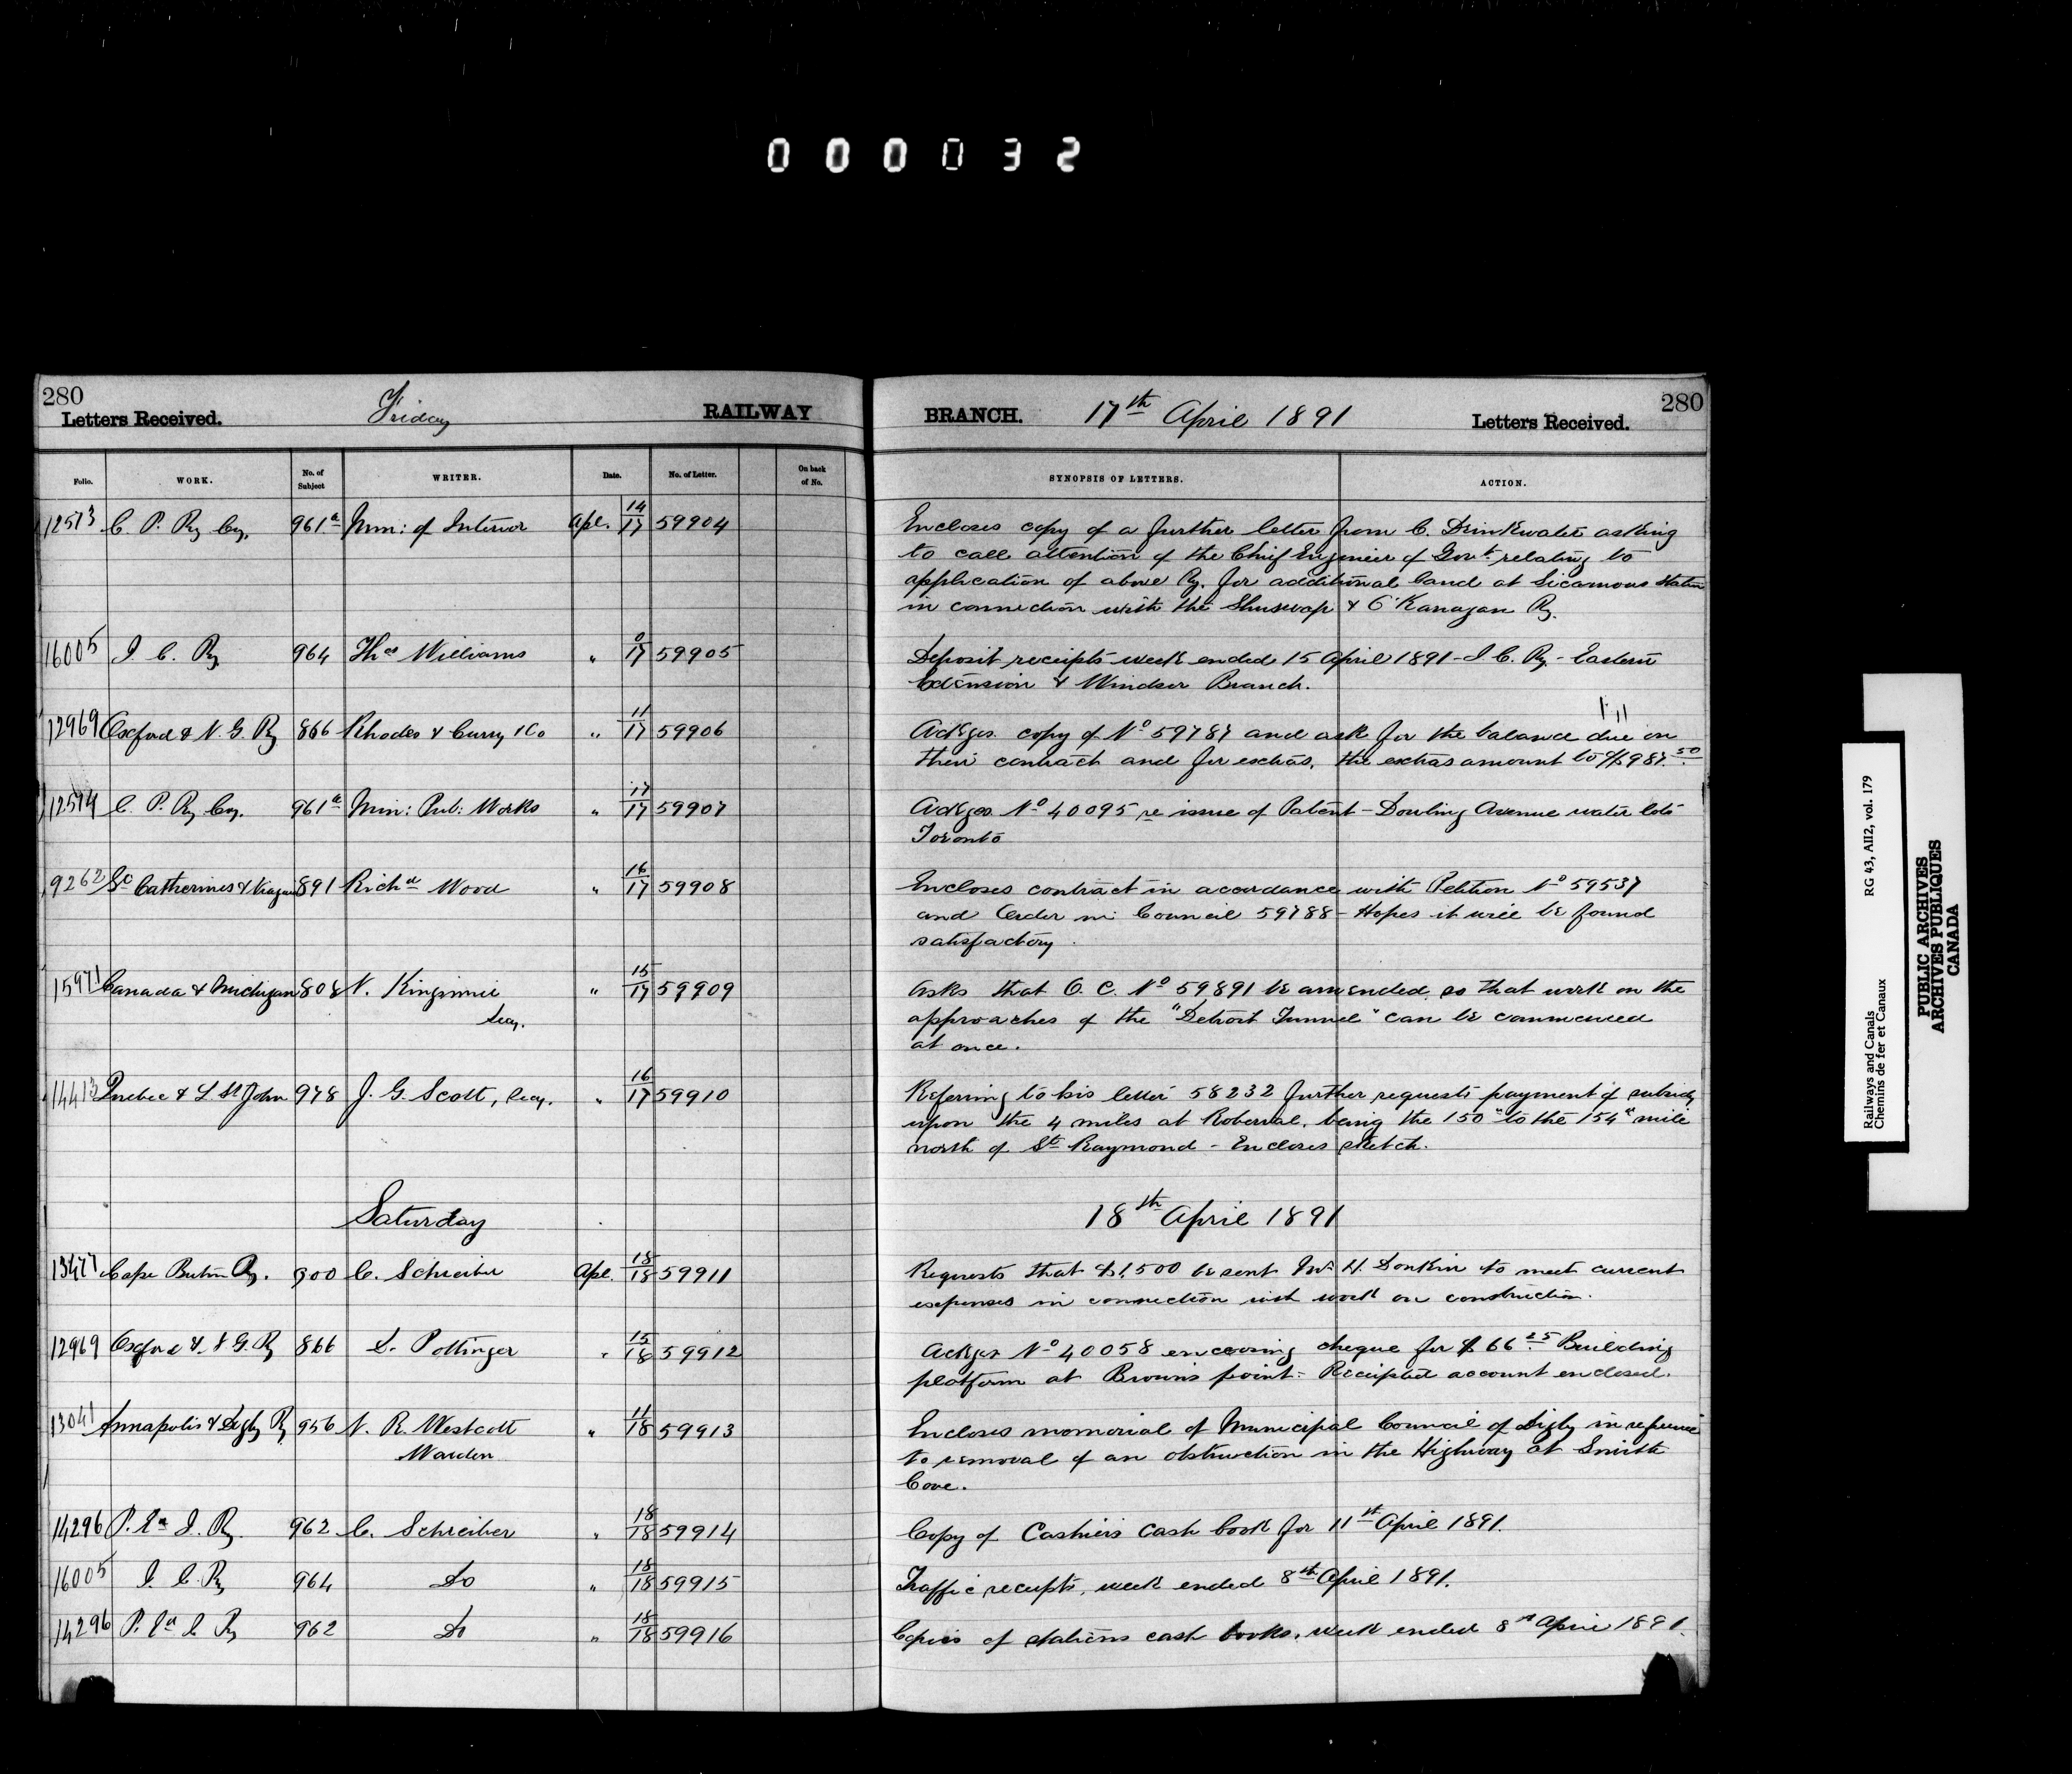 000032
280
Letters Received.
Friday
RAILWAY
BRANCH.
17th April 1891
Letters Received.
280
Folio. WORK. No. of Subject WRITER. Date. No. of Letter. On back of No. SYNOPSIS OF LETTERS. ACTION.
12513 C. P. Ry Coy. 961a Min: of Interior Apl. 14/17 59904 Encloses copy of a further letter from C. Drinkwater asking
to call attention of the Chief Engineer of Govt. relating to
application of above Ry. for additional land at Sicamous station
in connection with the Shuswap & O'Kanagan Ry.
16005 I. C. Ry 964 Thos Williams " 0/17 59905 Deposit receipts week ended 15 April 1891 - I. C. Ry. - Eastern
Extension & Windsor Branch.
12969 Oxford & N. G. Ry 866 Rhodes & Curry & Co " 11/17 59906 Ackges. copy of No 59787 and ask for the balance due on
their contract and for extras, the extras amount to $987.50
12514 C. P. Ry Coy. 961a Min: Pub. Works " 17/17 59907 Ackges. No 40095 re issue of Patent - Dowling Avenue water lots
Toronto
9262 St Catherines & Niagara 891 Richd Wood " 16/17 59908 Encloses contract in accordance with Petition No 59537
and Order in Council 59788 - Hopes it will be found
satisfactory.
15971 Canada & Michigan 808 N. Kingsmill " 15/17 59909 Asks that O. C. No 59891 be amended so that work on the
Secy.
approaches of the "Detroit Tunnel" can be commenced
at once.
14413 Quebec & L. St John 978 J. G. Scott, Secy. " 16/17 59910 Referring to his letter 58232 further requests payment of subsidy
upon the 4 miles at Roberval, being the 150" to the 154" mile
north of St Raymond - Encloses sketch.
Saturday
18th April 1891
13477 Cape Breton Ry. 900 C. Schreiber Apl. 18/18 59911 Requests that $1,500 be sent Mr H. Donkin to meet current
expenses in connection with work on construction.
12969 Oxford & N. G. Ry 866 D. Pottinger " 15/18 59912 Ackges No 40058 enclosing cheque for $66.25 Building
platform at Browns point - Receipted account enclosed.
13041 Annapolis & Digby Ry 956 N. R. Westcott " 11/18 59913 Encloses memorial of Municipal Council of Digby in reference
Warden
to removal of an obstruction in the Highway at Smith
Cove.
14296 P. Ed I. Ry. 962 C. Schreiber " 18/18 59914 Copy of Cashiers cash book for 11th April 1891.
16005 I. C. Ry 964 Do " 18/18 59915 Traffic receipts, week ended 8th April 1891.
14296 P. Ed I. Ry 962 Do " 18/18 59916 Copies of stations cash books, week ended 8th April 1891.
Railways and Canals RG 43, AII2, vol. 179
Chemins de fer et Canaux
PUBLIC ARCHIVES
ARCHIVES PUBLIQUES
CANADA